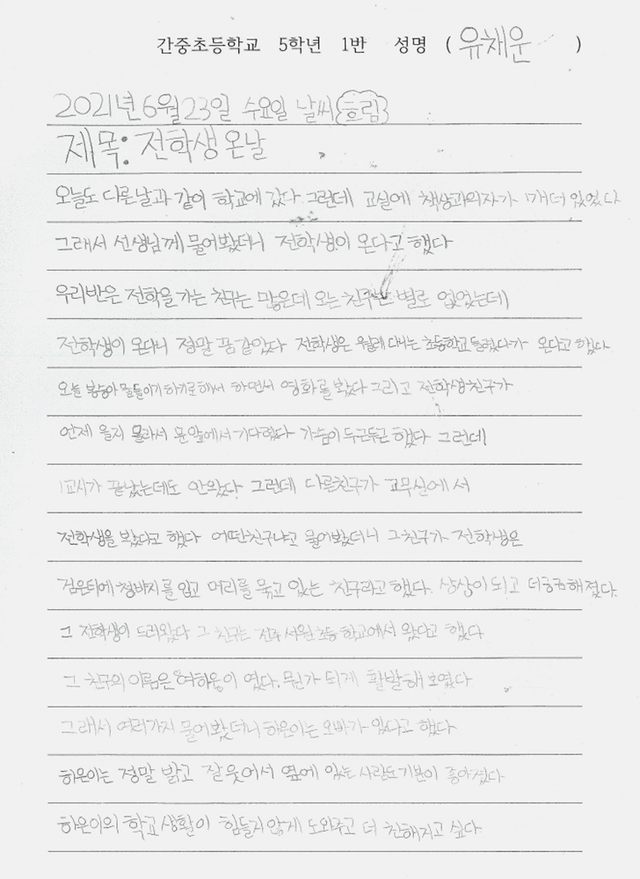 간중초등학교 5학년 1반 성명 ( 유채운 )
2021년 6월 23일 수요일 날씨 흐림
제목: 전학생 온날
오늘도 다른날과 같이 학교에 갔다. 그런데 교실에 책상과의자가 1개더 있었다
그래서 선생님께 물어봤더니 전학생이 온다고 했다
우리반은 전학을 가는 친구는 많은데 오는 친구는 별로 없었는데
전학생이 온다니 정말 꿈같았다 전학생은 원래 다니는 초등학교 들렸다가 온다고 했다
오늘 봉숭아 물들이기 하기로해서 하면서 영화를 봤다 그리고 전학생친구가
언제 올지 몰라서 문앞에서 기다렸다 가슴이 두근두근 했다 그런데
1교시가 끝났는데도 안왔다. 그런데 다른친구가 교무실에서
전학생을 봤다고 했다 어떤친구냐고 물어봤더니 그친구가 전학생은
검은티에 청바지를 입고 머리를 묶고 있는 친구라고 했다. 상상이 되고 더궁금해졌다.
그 전학생이 드러왔다 그 친구는 전주 서원 초등학교에서 왔다고 했다
그 친구의 이름은 여하은이 였다. 뭔가 되게 활발해 보였다
그래서 여러가지 물어봤더니 하은이는 오빠가 있다고 했다
하은이는 정말 밝고 잘웃어서 옆에 있는 사람도 기분이 좋아졌다
하은이의 학교 생활이 힘들지 않게 도와주고 더 친해지고 싶다